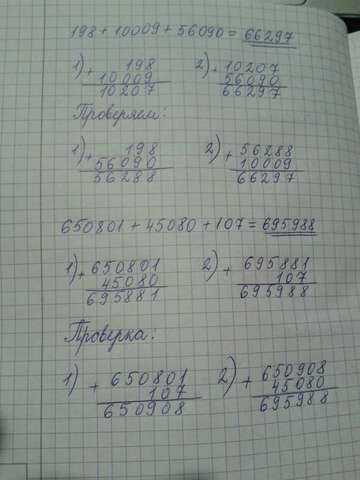 198 + 10009 + 56090 = 66297
1) + 198 2) + 10207
10009 56090
10207 66297
Проверяем:
1) + 198 2) + 56288
56090 10009
56288 66297
650801 + 45080 + 107 = 695988
1) + 650801 2) + 695881
45080 107
695881 695988
Проверка:
1) + 650801 2) + 650908
107 45080
650908 695988